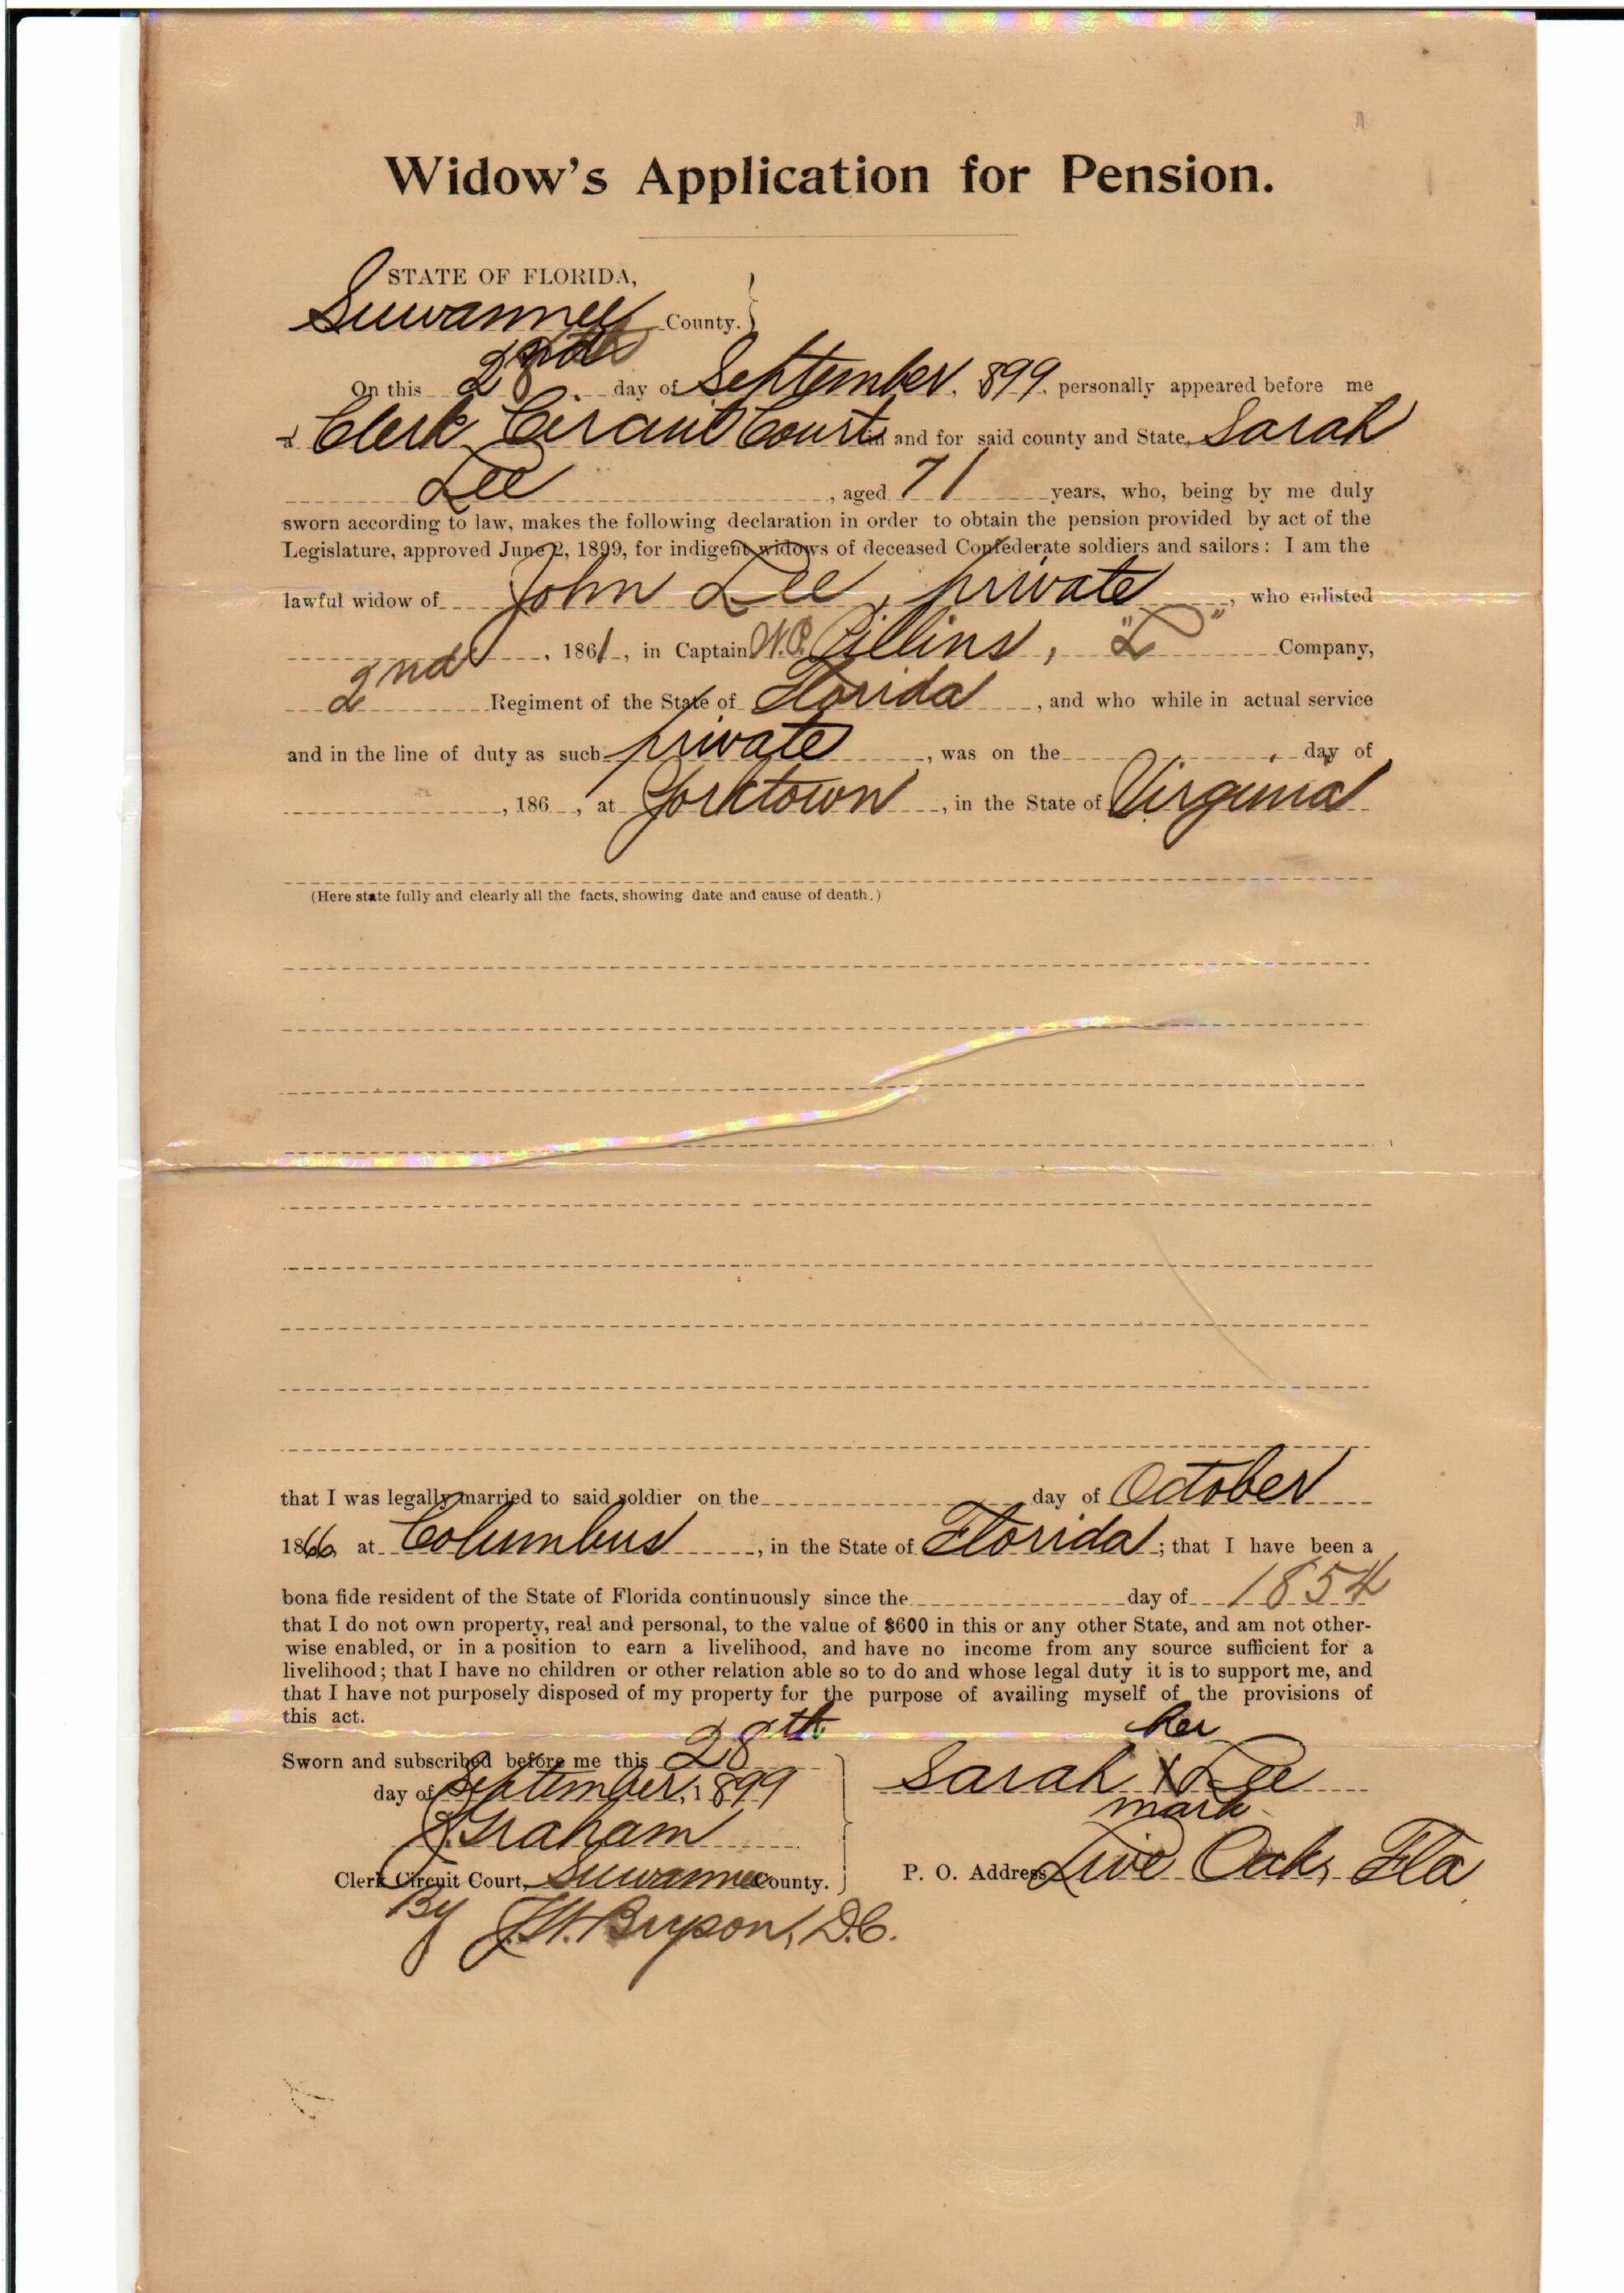 Widow's Application for Pension.
STATE OF FLORIDA,
Suwannee County.
On this 28 day of September, 1899, personally appeared before me
a Clerk Circuit Court in and for said county and State, Sarah
Lee, aged 71 years, who, being by me duly
sworn according to law, makes the following declaration in order to obtain the pension provided by act of the
Legislature, approved June 2, 1899, for indigent widows of deceased Confederate soldiers and sailors: I am the
lawful widow of John Lee, private, who enlisted
, 1861, in Captain W.P. Pillins, "D" Company,
2nd Regiment of the State of Florida, and who while in actual service
and in the line of duty as such private, was on the day of
, 186 , at Yorktown, in the State of Virginia
(Here state fully and clearly all the facts, showing date and cause of death.)
that I was legally married to said soldier on the day of October
1866 at Columbus, in the State of Florida; that I have been a
bona fide resident of the State of Florida continuously since the day of 1854
that I do not own property, real and personal, to the value of $600 in this or any other State, and am not other-
wise enabled, or in a position to earn a livelihood, and have no income from any source sufficient for a
livelihood; that I have no children or other relation able so to do and whose legal duty it is to support me, and
that I have not purposely disposed of my property for the purpose of availing myself of the provisions of
this act.
Sworn and subscribed before me this 28th
day of September, 1899
Graham
Clerk Circuit Court, Suwannee County.
By Bryson, D.C.
her
Sarah X Lee
mark
P. O. Address Live Oak, Fla